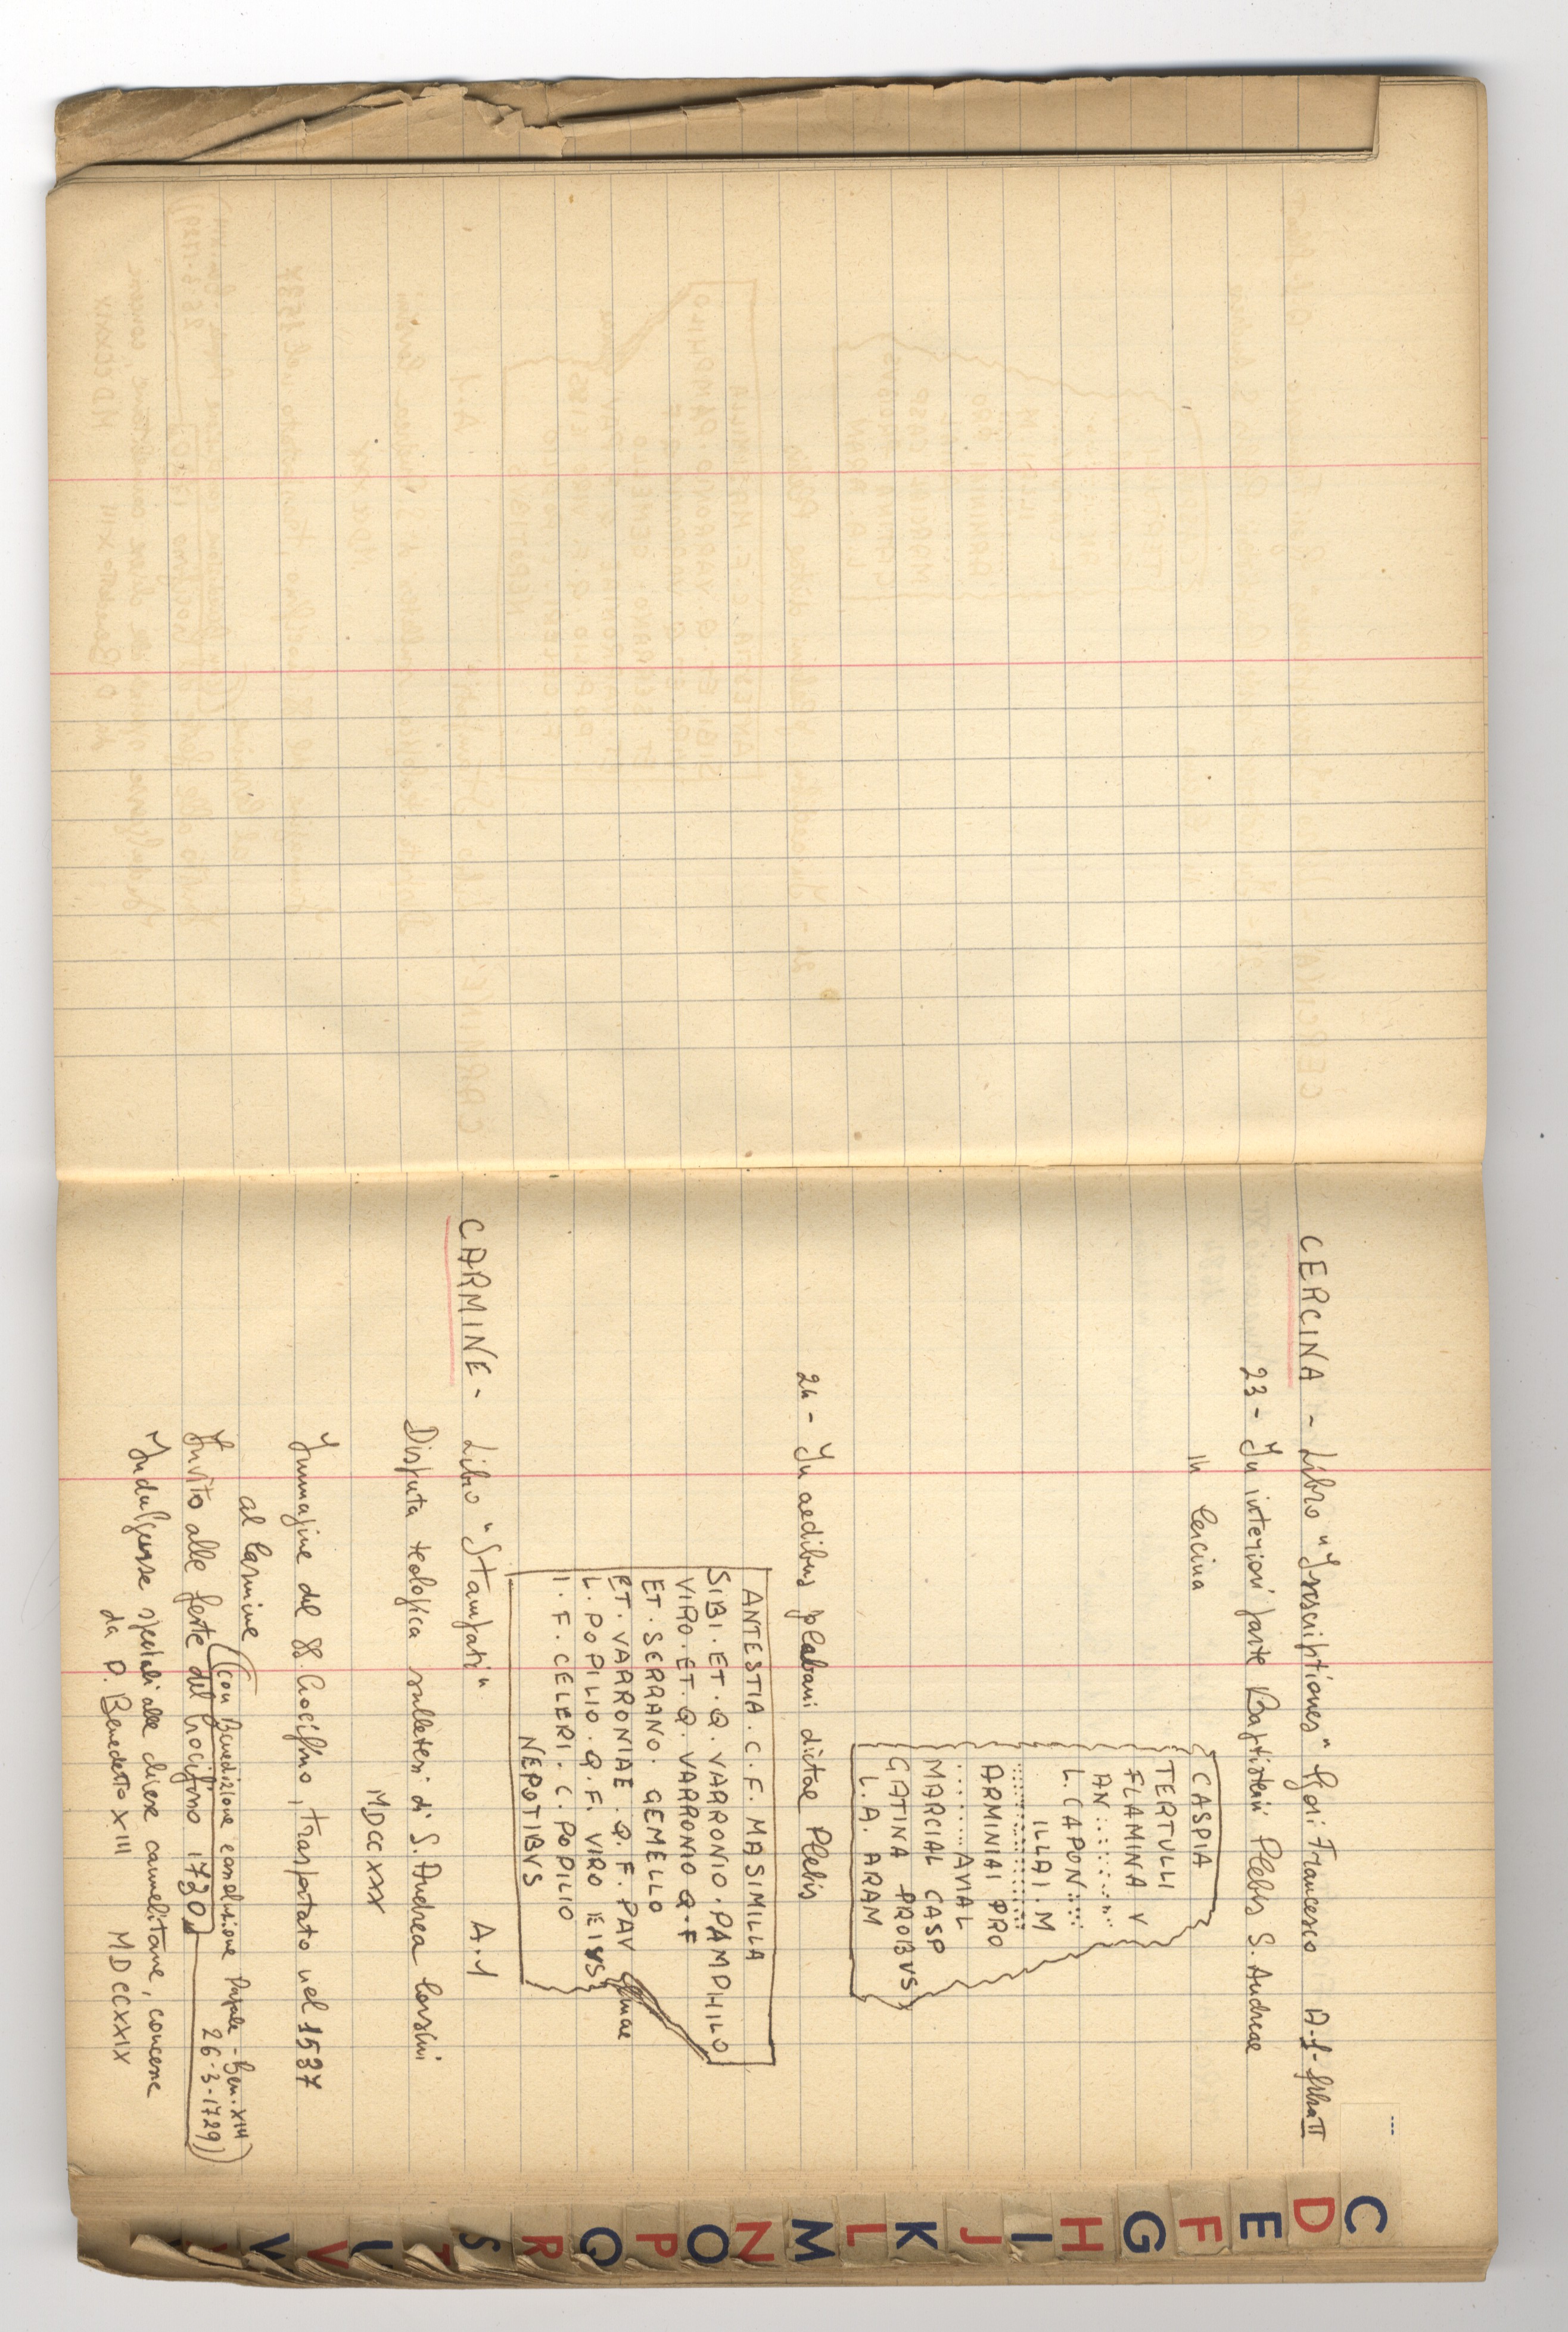 CERCINA - Libro "Inscriptiones" di Francesco A.1-
23 - In interiori parte Baptisterii Plebis S. Andreae
in Cercina
CASPIA
TERTULLI
FLAMINA V
AN.........
L. CAPON.....
ILLAI. M
..............
ARMINIAI PRO
....... AVIAL
MARCIAL CASP
GATINA PROBVS
L. A. ARAM
24 - In aedibus plebani dictae Plebis
ANTESTIA. C. F. MASIMILLA
SIBI. ET. Q. VARRONIO. PAMPHILO
VIRO. ET. Q. VARRONIO Q. F
ET. SERRANO. GEMELLO
ET. VARRONIAE. Q. F. PAV linae
L. POPILIO. Q. F. VIRO EIVS
I. F. CELERI. C. POPILIO
NEPOTIBVS
CARMINE - Libro "Stampati" A.1
Disputa teologica sulle tesi di S. Andrea Corsini
MDCCXXX
Immagine del SS. Crocifisso, trasportato nel 1537
al Carmine
(con Benedizione e assoluzione Papale - Ben. XIII
26-3-1729)
Invito alle feste del Crocifisso 1730
Indulgenze speciali alle chiese carmelitane, concesse
da P. Benedetto XIII MDCCXXIX
C
D
E
F
G
H
I
J
K
L
M
N
O
P
Q
R
S
T
U
V